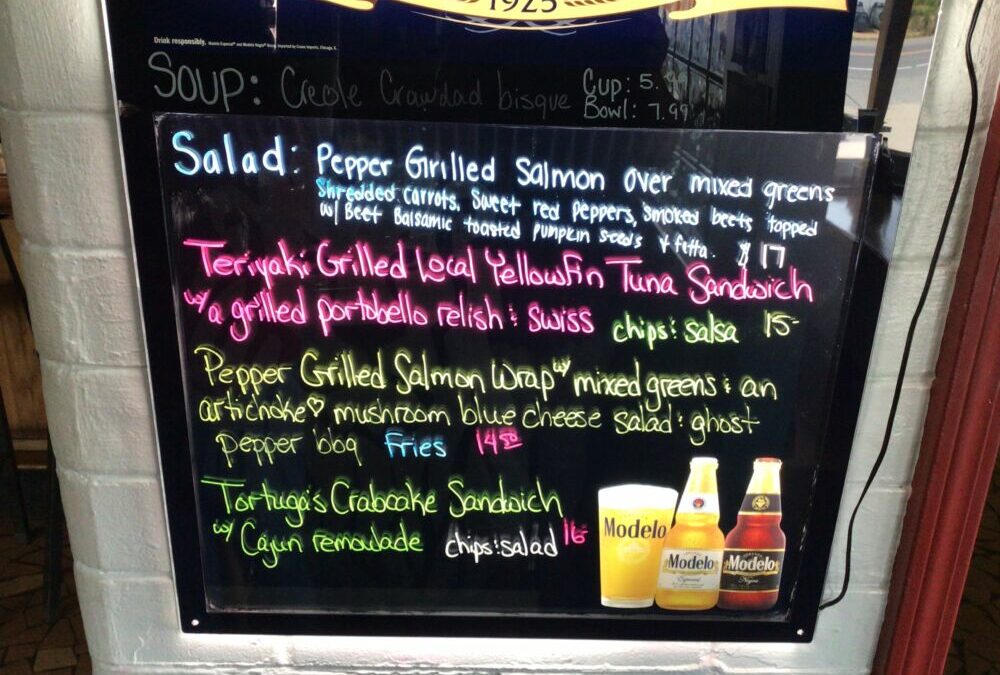 1925
Drink responsibly.
Soup: Creole Crawdad bisque Cup: 5.99
Bowl: 7.99
Salad: Pepper Grilled Salmon over mixed greens
Shredded carrots, Sweet red peppers, smoked beets topped
w/ Beet Balsamic toasted pumpkin seeds & fetta. $17
Teriyaki Grilled Local Yellowfin Tuna Sandwich
w/ a grilled portobello relish & swiss chips & salsa 15-
Pepper Grilled Salmon Wrap w/ mixed greens & an
artichoke ♡ mushroom blue cheese salad & ghost
pepper bbq Fries 14.50
Tortuga's Crabcake Sandwich
w/ Cajun remoulade chips & salad 16-
Modelo
Modelo
Especial
Modelo
Negra